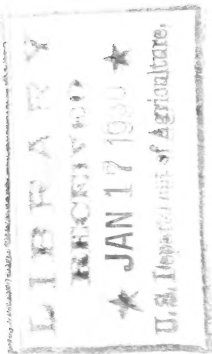 LIBRARY
RECEIVED
★ JAN 17 1930 ★
U. S. Department of Agriculture.